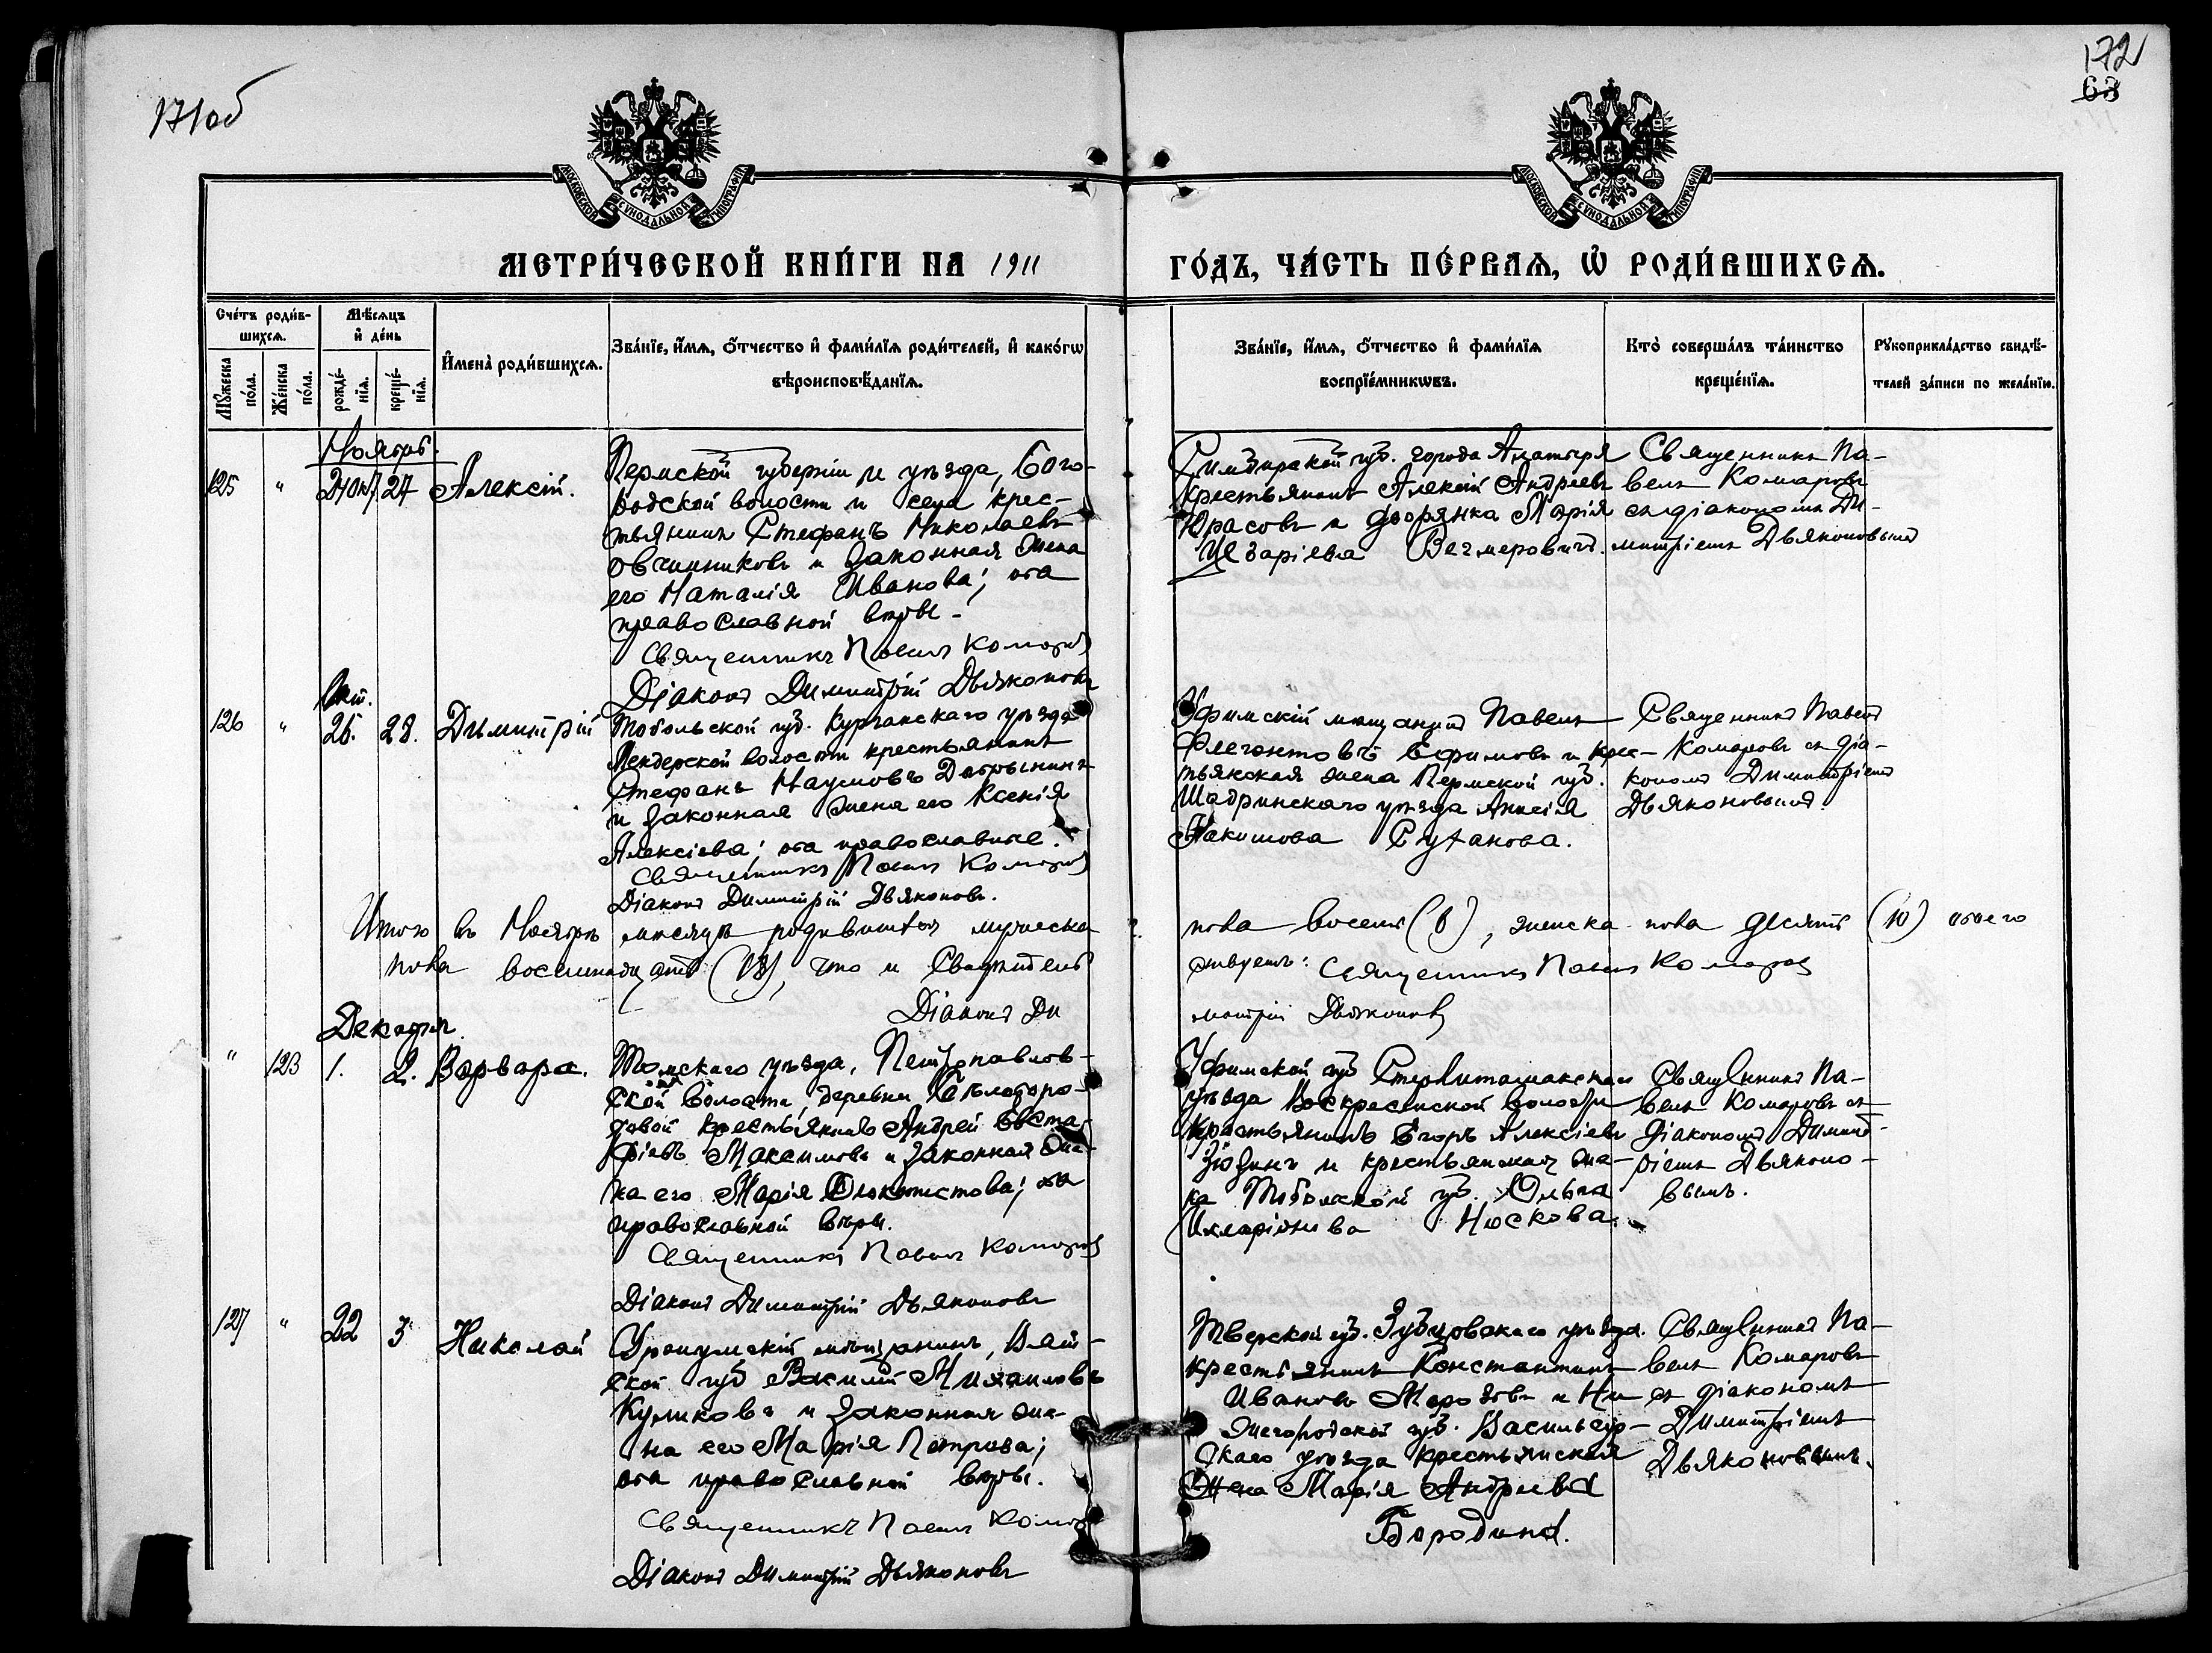 171об
172
63
МОСКОВСКОЙ СѴНОДАЛЬНОЙ ТИПОГРАФІИ
МОСКОВСКОЙ СѴНОДАЛЬНОЙ ТИПОГРАФІИ
МЕТРИ́ЧЕСКОЙ КНИ́ГИ НА 1911
ГО́ДЪ, ЧА́СТЬ ПЕ́РВАѦ, Ѡ РОДИ́ВШИХСѦ.
Сче́тъ роди́в-
шихсѧ.
Мꙋ́жеска
по́ла.
Же́нска
по́ла.
Мѣ́сѧцъ
и҆ де́нь
рожде́-
нїѧ.
креще́-
нїѧ.
И҆мена̀ роди́вшихсѧ.
Зва́нїе, и҆́мѧ, ѻ҆́тчество и҆ фами́лїѧ роди́телей, и҆ како́гѡ
вѣроисповѣ́данїѧ.
Зва́нїе, и҆́мѧ, ѻ҆́тчество и҆ фами́лїѧ
воспрїе́мникѡвъ.
Кто̀ соверша́лъ та́инство
креще́нїѧ.
Рꙋкоприкла́дство свидѣ́-
телей за́писи по жела́нїю.
Ноябрь.
125 " 27 Алексій.
Пермской губерніи и уѣзда, Бого-
родской волости и села крес-
тьянинъ Стефанъ Николаевъ
Овчинниковъ и законная жена
его Наталія Иванова; оба
православной вѣры.
Священникъ Павелъ Комаровъ
Діаконъ Димитрій Дьяконовъ
Симбирской губ. города Алатыря
крестьянинъ Алексій Андреевъ
Юрасовъ и дворянка Марія
Цезаріева
Священникъ Па-
велъ Комаровъ
съ діакономъ Ди-
митріемъ Дьяконовымъ
Окт.
126 " 26. 28. Димитрій
Тобольской губ. Курганскаго уѣзда
Мендерской волости крестьянинъ
Стефанъ Наумовъ Добрынинъ
и законная жена его Ксенія
Алексіева; оба православные.
Священникъ Павелъ Комаровъ
Діаконъ Димитрій Дьяконовъ.
Уфимскій мѣщанинъ Павелъ
Флегонтовъ Ефимовъ и крес-
тьянская жена Пермской губ.
Шадринскаго уѣзда Анисія
Священникъ Павелъ
Комаровъ съ діа-
кономъ Димитріемъ
Дьяконовымъ.
Итого въ Ноябрѣ мѣсяцѣ родившихся мужеска
пола восемь (8), женска пола десять (10) обоего
пола восемнадцать (18), что и свидѣтель
ствуемъ: Священникъ Павелъ Комаровъ
Діаконъ Ди
митрій Дьяконовъ
Декабрь.
" 123 1. 2. Варвара.
Томскаго уѣзда, Петропавлов-
ской волости, деревни Бѣлоборо-
довой крестьянинъ Андрей Евста-
фіевъ Максимовъ и законная же-
на его Марія; оба
православной вѣры.
Священникъ Павелъ Комаровъ
Діаконъ Димитрій Дьяконовъ
Уфимской губ Стерлитамакскаго
уѣзда Воскресенской волости
крестьянинъ Егоръ Алексіевъ
Зюзинъ и крестьянская же-
на Тобольской губ. Ольга
Илларіонова Носкова.
Священникъ Па-
велъ Комаровъ съ
діакономъ Димит-
ріемъ Дьяконо-
вымъ.
127 " 22 3 Николай
Уржумскій мѣщанинъ, Вят-
ской губ Василій Михаиловъ
Куликовъ и законная же-
на его Марія Петрова;
оба православной вѣры.
Священникъ Павелъ Комаровъ
Діаконъ Димитрій Дьяконовъ
Тверской губ. Зубцовскаго уѣзда
крестьянинъ Константинъ
Ивановъ Морозовъ и Ни-
жегородской губ. Васильсур-
скаго уѣзда крестьянская
жена Марія Андреева
Бородина.
Священникъ Па-
велъ Комаровъ
съ діакономъ
Димитріемъ
Дьяконовымъ.